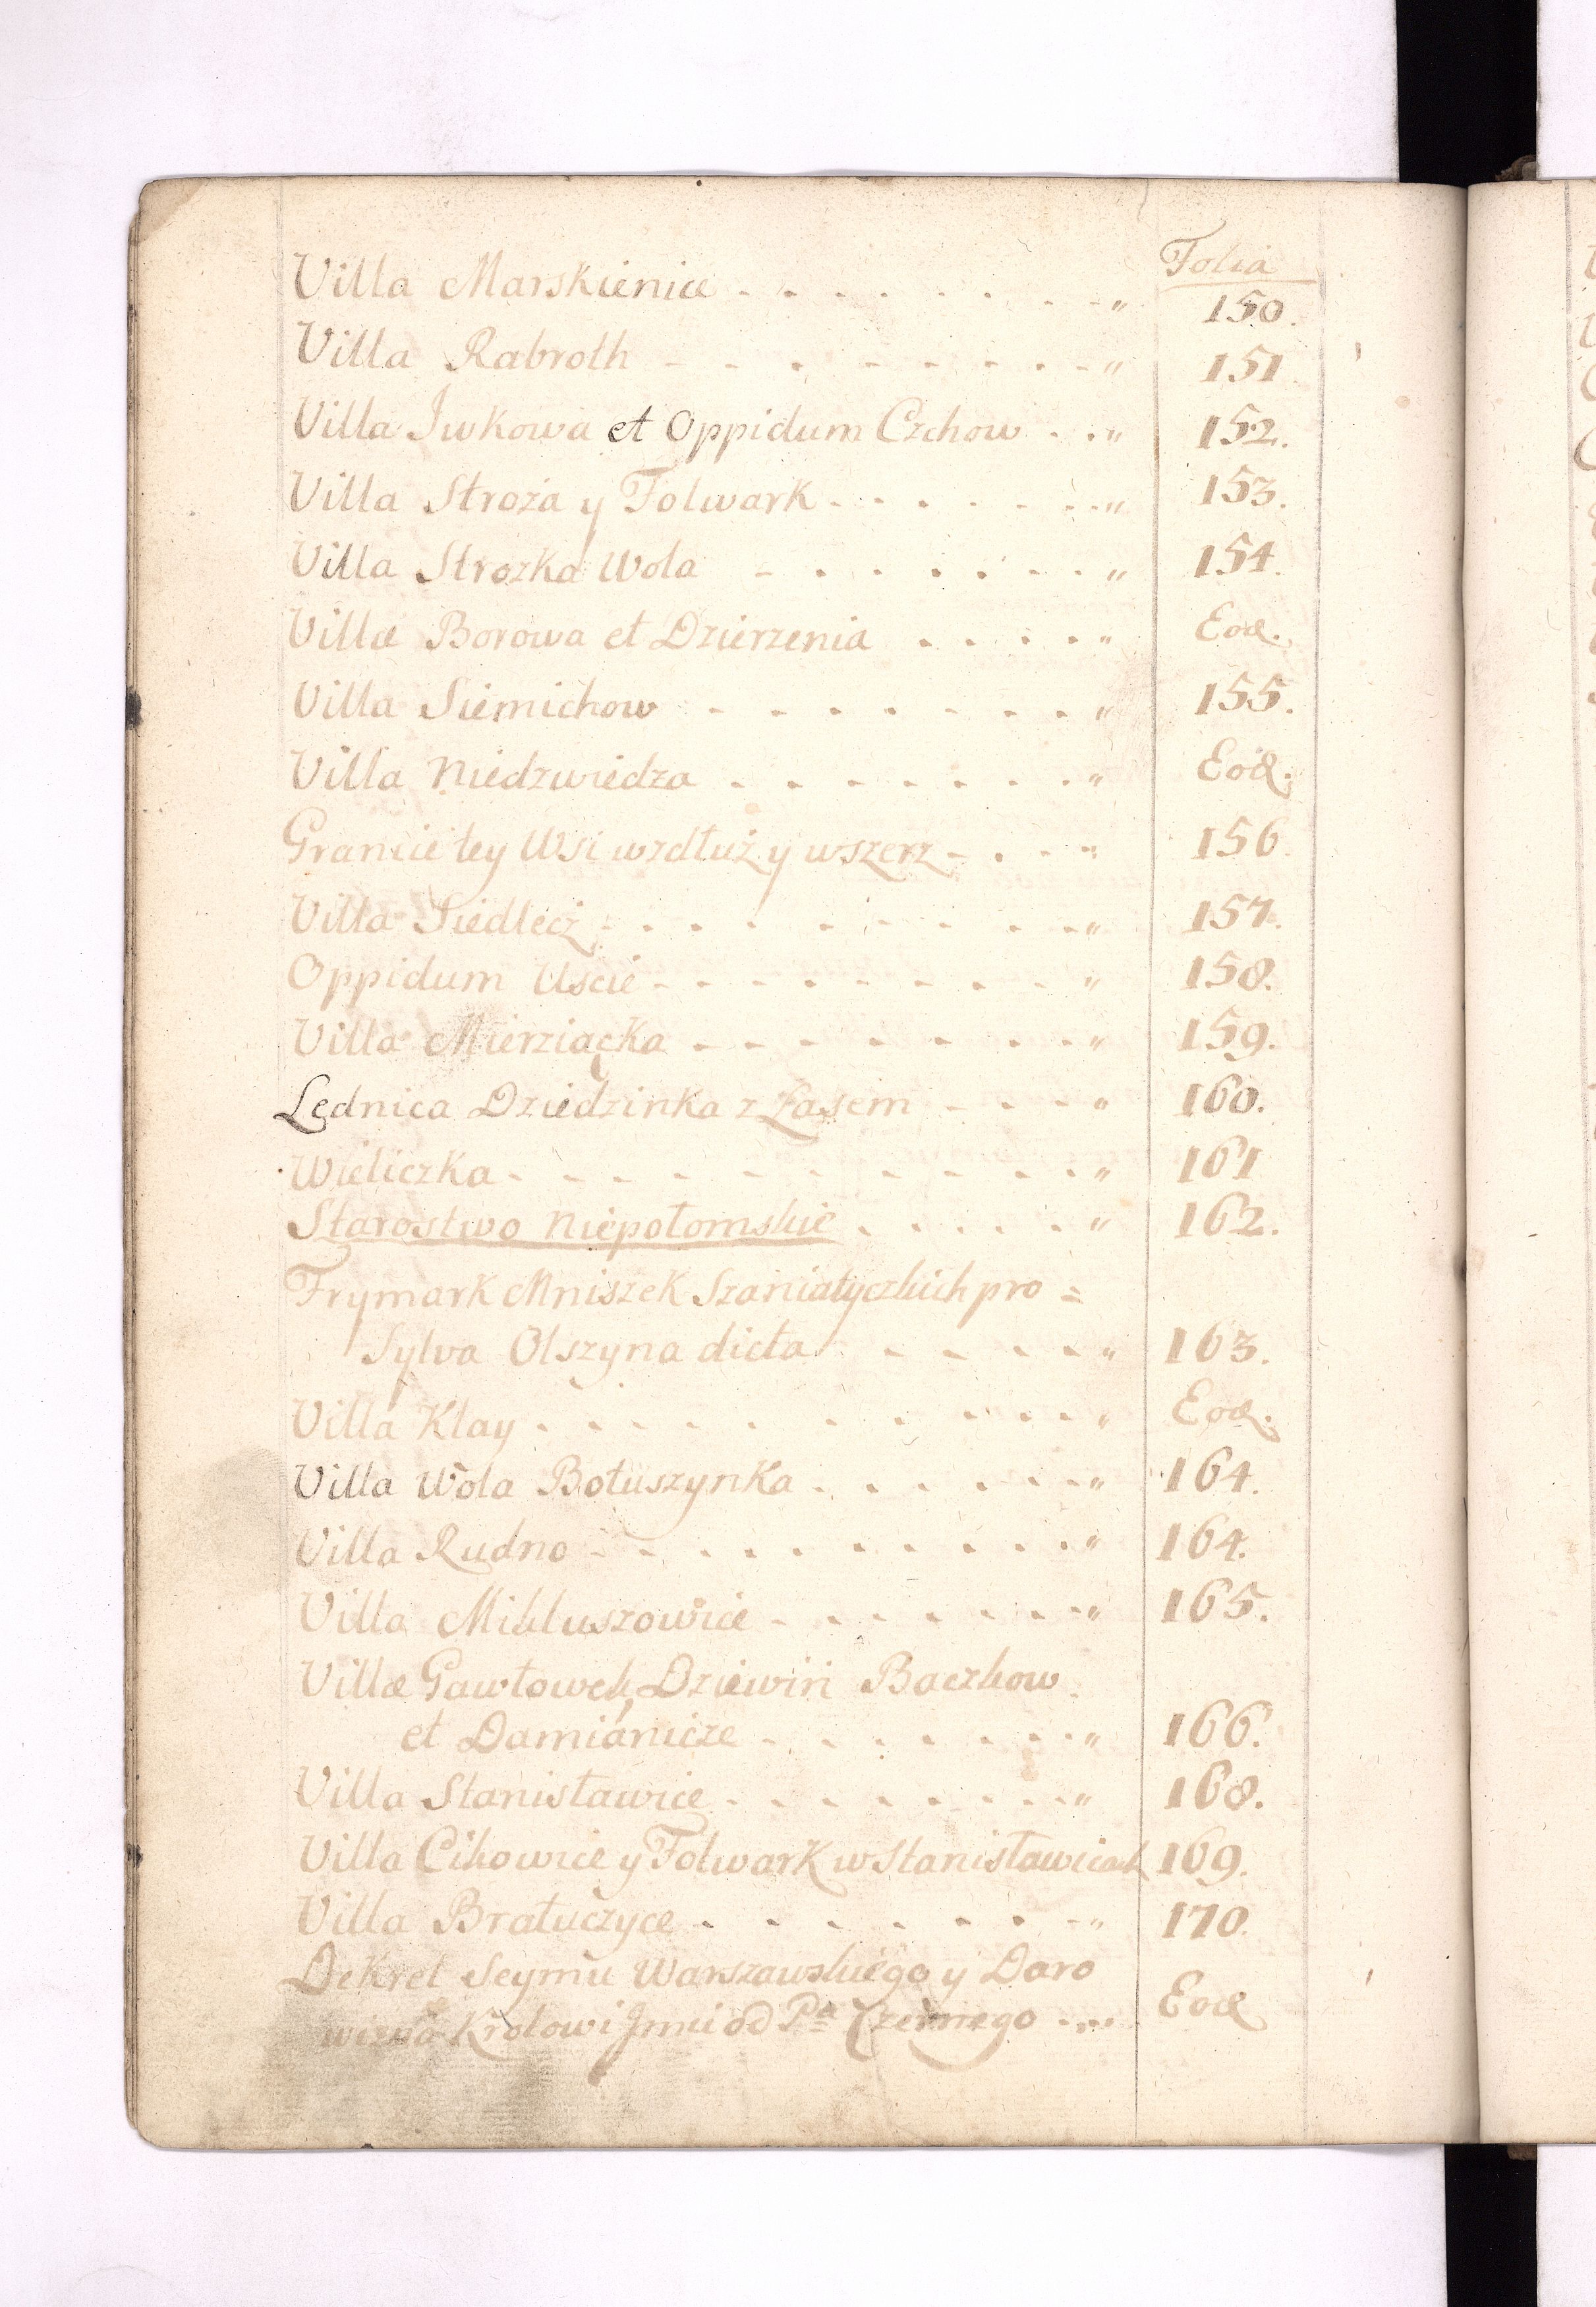 Folia
Villa Marskienice . . . . . . . . . „ 150.
Villa Rabroth - - . . . . . . . . „ 151
Villa Iwkowa et Oppidum Czchow . . „ 152.
Villa Stroża y Folwark . . . . . . . „ 153.
Villa Strozka Wola - . . . . . . . „ 154.
Villæ Borowa et Dzierzenia . . . . . „ Eod.
Villa Siemichow . . . . . . . . „ 155.
Villa Niedzwiedza . . . . . . . „ Eod.
Granice tey Wsi wzdłuż y wszerz - . . . „ 156.
Villa Siedlecz . . . . . . . . . „ 157.
Oppidum Uscie - . . . . . . . . „ 158.
Villa Mierziącka . . . . . . . . „ 159.
Lednica Dziedzinka z Łasem - . . . „ 160.
Wieliczka . . . . . . . . . . . „ 161
Starostwo Niepołomskie . . . . . „ 162.
Frymark Mniszek Szaniatyczkich pro =
Sylva Olszyna dicta . . . . . „ 163.
Villa Kłay . . . . . . . . . . . „ Eod.
Villa Wola Botuszynka . . . . . . „ 164.
Villa Rudno - . . . . . . . . . „ 164.
Villa Mikluszowice - . . . . . . „ 165.
Villæ Gawłowek, Dziewiń Baczkow
et Damianicze . . . . . . . „ 166.
Villa Stanisławice . . . . . . . . „ 168.
Villa Cikowice y Folwark w Stanisławicach 169.
Villa Bratuczyce . . . . . . . - „ 170.
Dekret Seymu Warszawskiego y Daro
wizna Krolowi Jmci od Pa Czernego .... Eod